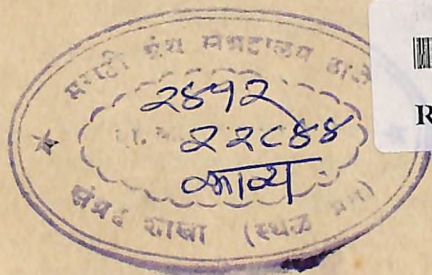 मराठी ग्रंथ संग्रहालय ठाणे
२४१२
२२८४४
काव्य
संग्रह शाखा (स्थळ
R